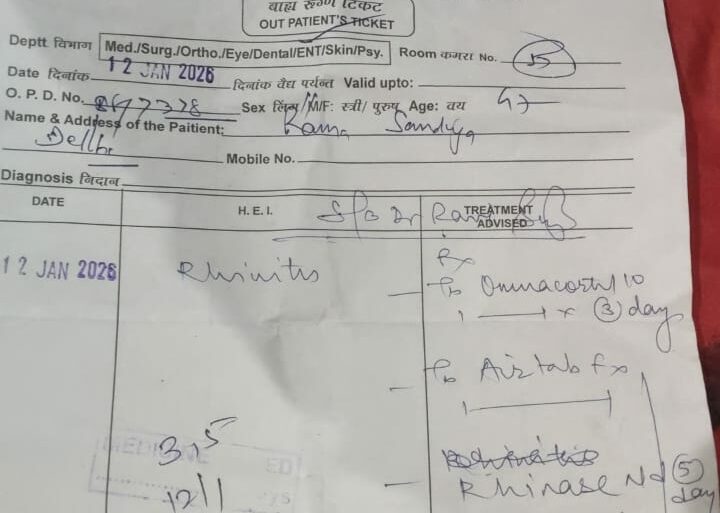 बाह्य रूग्ण टिकट
OUT PATIENT'S TICKET
Deptt विभाग Med./Surg./Ortho./Eye/Dental/ENT/Skin/Psy. Room कमरा No. B
Date दिनांक 12 JAN 2026 दिनांक वैध पर्यन्त Valid upto:
O. P. D. No. Sex लिंग M/F: स्त्री/ पुरुष Age: वय 47
Name & Address of the Paitient: Rama Sanduja
Delhi Mobile No.
Diagnosis निदान
DATE H. E. I. TREATMENT ADVISED
S/B Dr
12 JAN 2026 Rhinitis Rx
Tb Omnacortil 10
1 —— 1 x 3 day
Tb Airtab fx
1 —— 1
3.5
Rhinase Nd 5 day
12 11